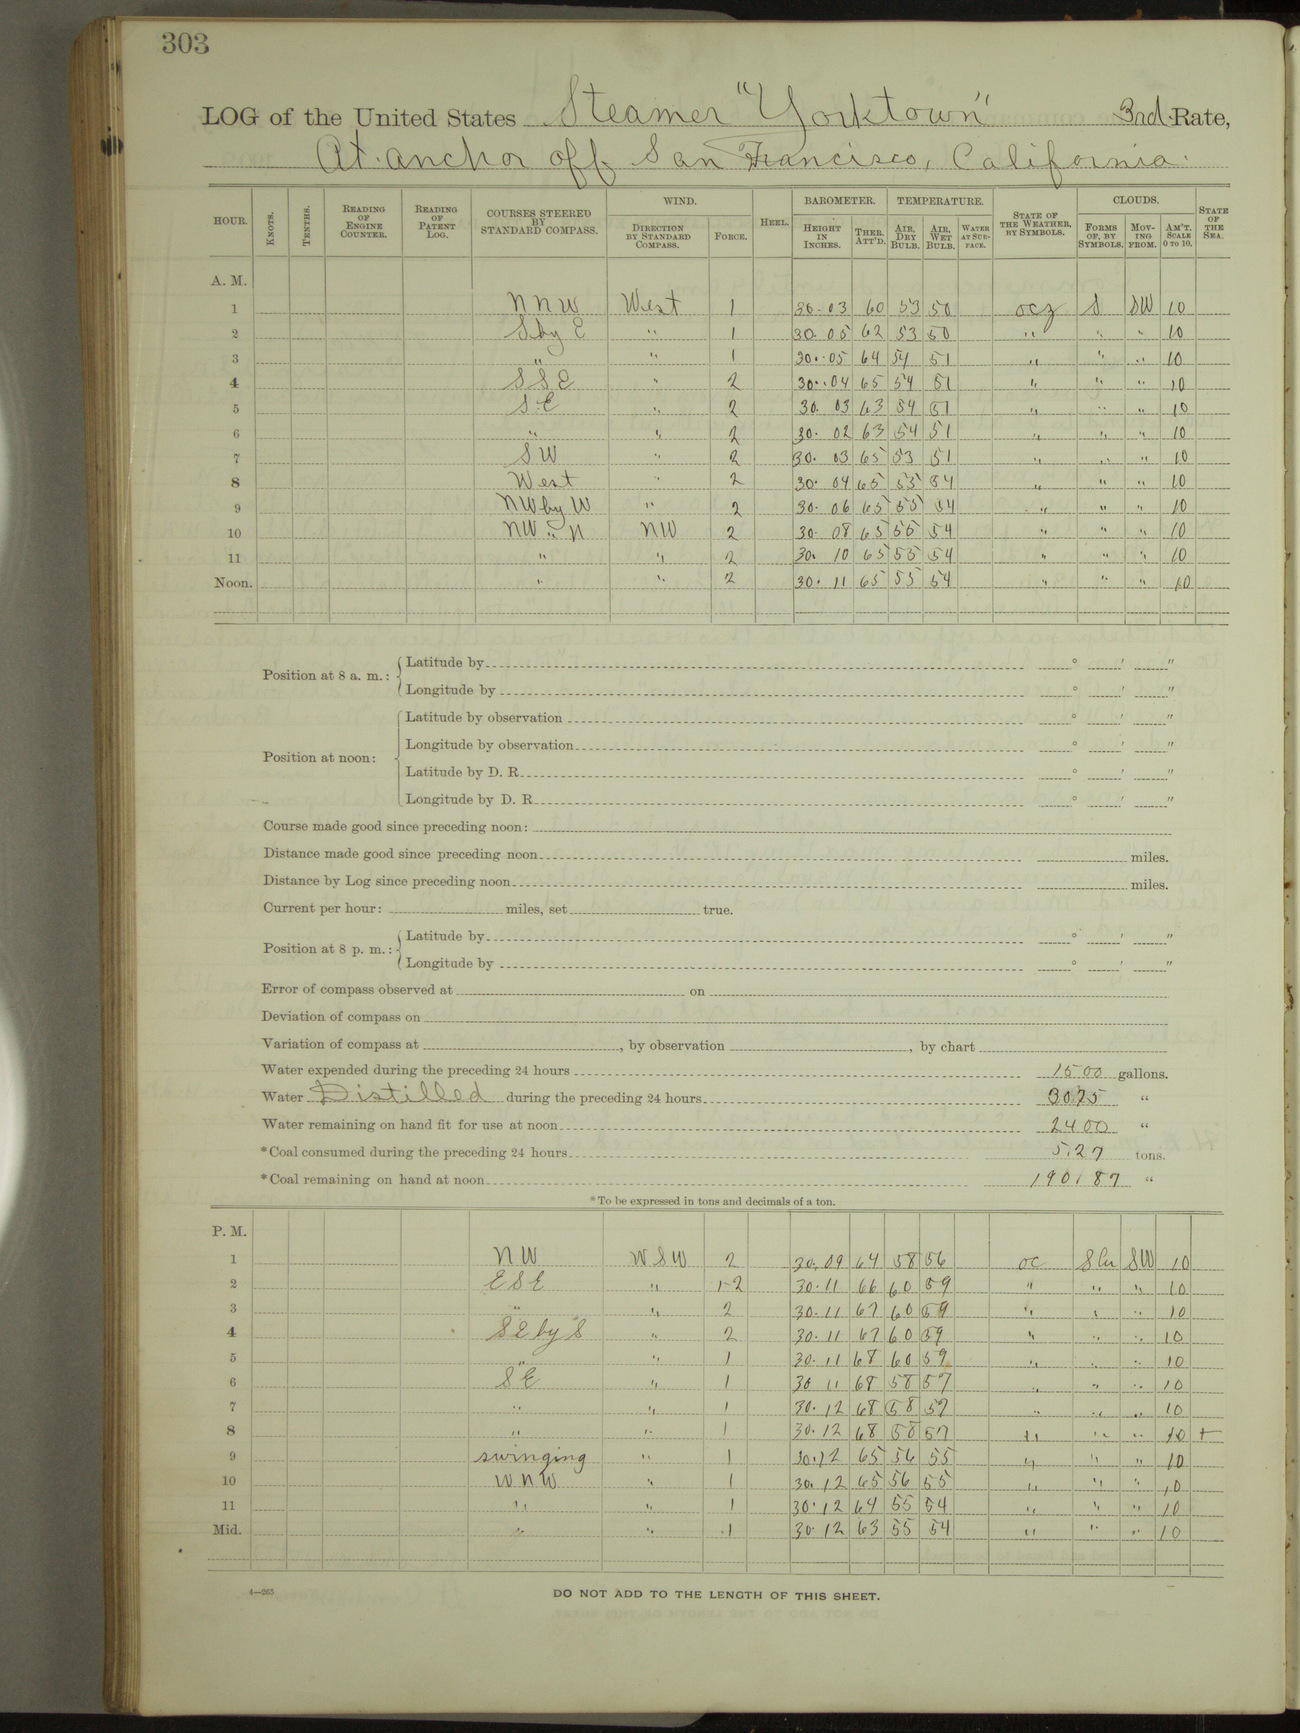 303
LOG of the United States Steamer "Yorktown" 3rd Rate,
At anchor off San Francisco, California.
HOUR. KNOTS. TENTHS. READING OF ENGINE COUNTER. READING OF PATENT LOG. COURSES STEERED BY STANDARD COMPASS. WIND. DIRECTION BY STANDARD COMPASS. FORCE. HEEL. BAROMETER. HEIGHT IN INCHES. THER. ATT'D. TEMPERATURE. AIR, DRY BULB. AIR, WET BULB. WATER AT SURFACE. STATE OF THE WEATHER, BY SYMBOLS. CLOUDS. FORMS OF, BY SYMBOLS. MOVING FROM. AM'T. SCALE 0 TO 10. STATE OF THE SEA.
A. M.
1 NNW West 1 30.03 60 53 50 ocz S SW 10
2 S by E " 1 30.05 62 53 50 " " " 10
3 " " 1 30.05 64 54 51 " " " 10
4 SSE " 2 30.04 65 54 51 " " " 10
5 SE " 2 30.03 63 54 51 " " " 10
6 " " 2 30.02 63 54 51 " " " 10
7 SW " 2 30.03 65 53 51 " " " 10
8 West " 2 30.04 65 55 54 " " " 10
9 NW by W " 2 30.06 65 55 54 " " " 10
10 NW " N NW 2 30.08 65 55 54 " " " 10
11 " " 2 30.10 65 55 54 " " " 10
Noon. " " 2 30.11 65 55 54 " " " 10
Position at 8 a. m.: Latitude by ° ' "
Longitude by ° ' "
Position at noon: Latitude by observation ° ' "
Longitude by observation ° ' "
Latitude by D. R. ° ' "
Longitude by D. R. ° ' "
Course made good since preceding noon:
Distance made good since preceding noon miles.
Distance by Log since preceding noon miles.
Current per hour: miles, set true.
Position at 8 p. m.: Latitude by ° ' "
Longitude by ° ' "
Error of compass observed at on
Deviation of compass on
Variation of compass at , by observation , by chart
Water expended during the preceding 24 hours 1500 gallons.
Water Distilled during the preceding 24 hours 3075 "
Water remaining on hand fit for use at noon 2400 "
*Coal consumed during the preceding 24 hours 5.27 tons.
*Coal remaining on hand at noon 190.87 "
*To be expressed in tons and decimals of a ton.
P. M.
1 NW WSW 2 30.09 64 58 56 oc S Cu SW 10
2 ESE " 1-2 30.11 66 60 59 " " " 10
3 " " 2 30.11 67 60 59 " " " 10
4 SE by S " 2 30.11 67 60 59 " " " 10
5 " " 1 30.11 68 60 59 " " " 10
6 SE " 1 30 11 68 58 57 " " " 10
7 " " 1 30.12 68 58 57 " " " 10
8 " " 1 30.12 68 58 57 " " " 10 +
9 swinging " 1 30.12 65 56 55 " " " 10
10 WNW " 1 30.12 65 56 55 " " " 10
11 " " 1 30.12 64 55 54 " " " 10
Mid. " " 1 30.12 63 55 54 " " " 10
4—265
DO NOT ADD TO THE LENGTH OF THIS SHEET.